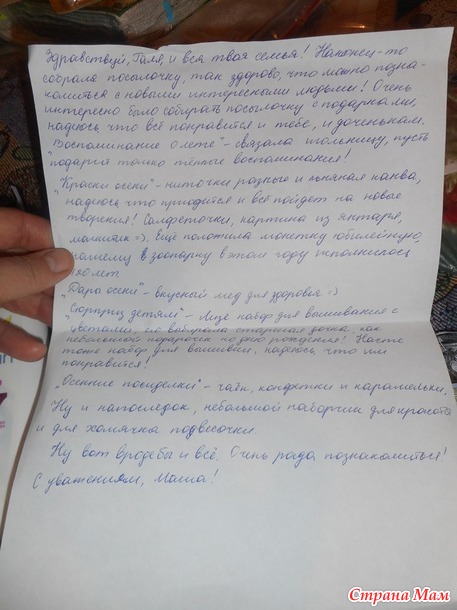 Здравствуй, Галя, и вся твоя семья! Наконец-то
собрала посылочку, так здорово, что можно позна-
комиться с новыми интересными людьми! Очень
интересно было собирать посылочку с подарками,
надеюсь что всё понравится и тебе, и доченькам.
"Воспоминание о лете" - связала игольницу, пусть
подарит только тёплые воспоминания!
"Краски осени" - ниточки разные и льняная канва,
надеюсь что пригодится и всё пойдет на новые
творения! Салфеточки, картина из янтаря,
магнитик =). Ещё положила монетку юбилейную,
нашему зоопарку в этом году исполнилось
лет.
"Дары осени" - вкусный мед для здоровья =)
"Сюрприз детям" - Лизе набор для вышивания с
цветами, его выбирала старшая дочка, как
небольшой подарочек ко дню рождения! Насте
тоже набор для вышивки, надеюсь, что им
понравится!
"Осенние посиделки" - чаёк, конфетки и карамельки.
Ну и напоследок, небольшой наборчик для красоты
и для хомячка подвесочки.
Ну вот вроде бы и всё. Очень рада познакомиться!
С уважением, Маша!
Страна Мам